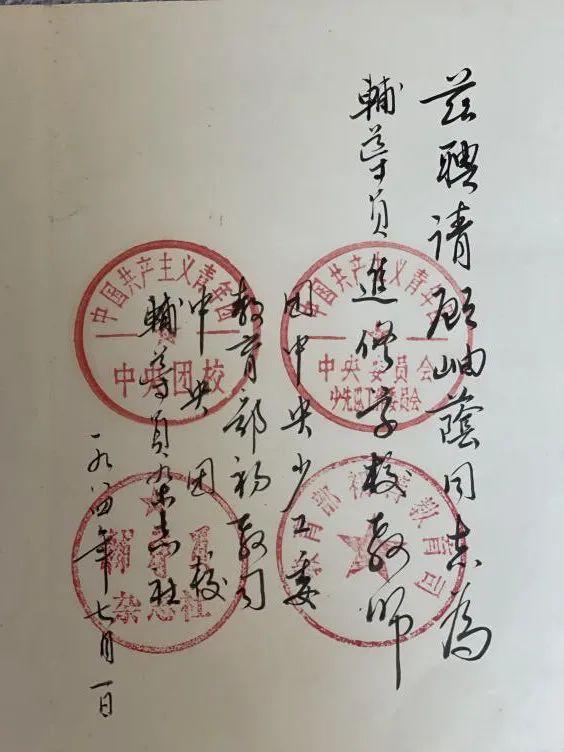 兹聘请顾岫蔭同志為
輔导员進修学校教师
团中央少工委
教育部初教司
中央团校
輔导員杂志社
一九八四年七月一日
中国共产主义青年团
中央委员会
少先队工作委员会
中国共产主义青年团
中央团校
教育部初等教育司
辅导员
杂志社